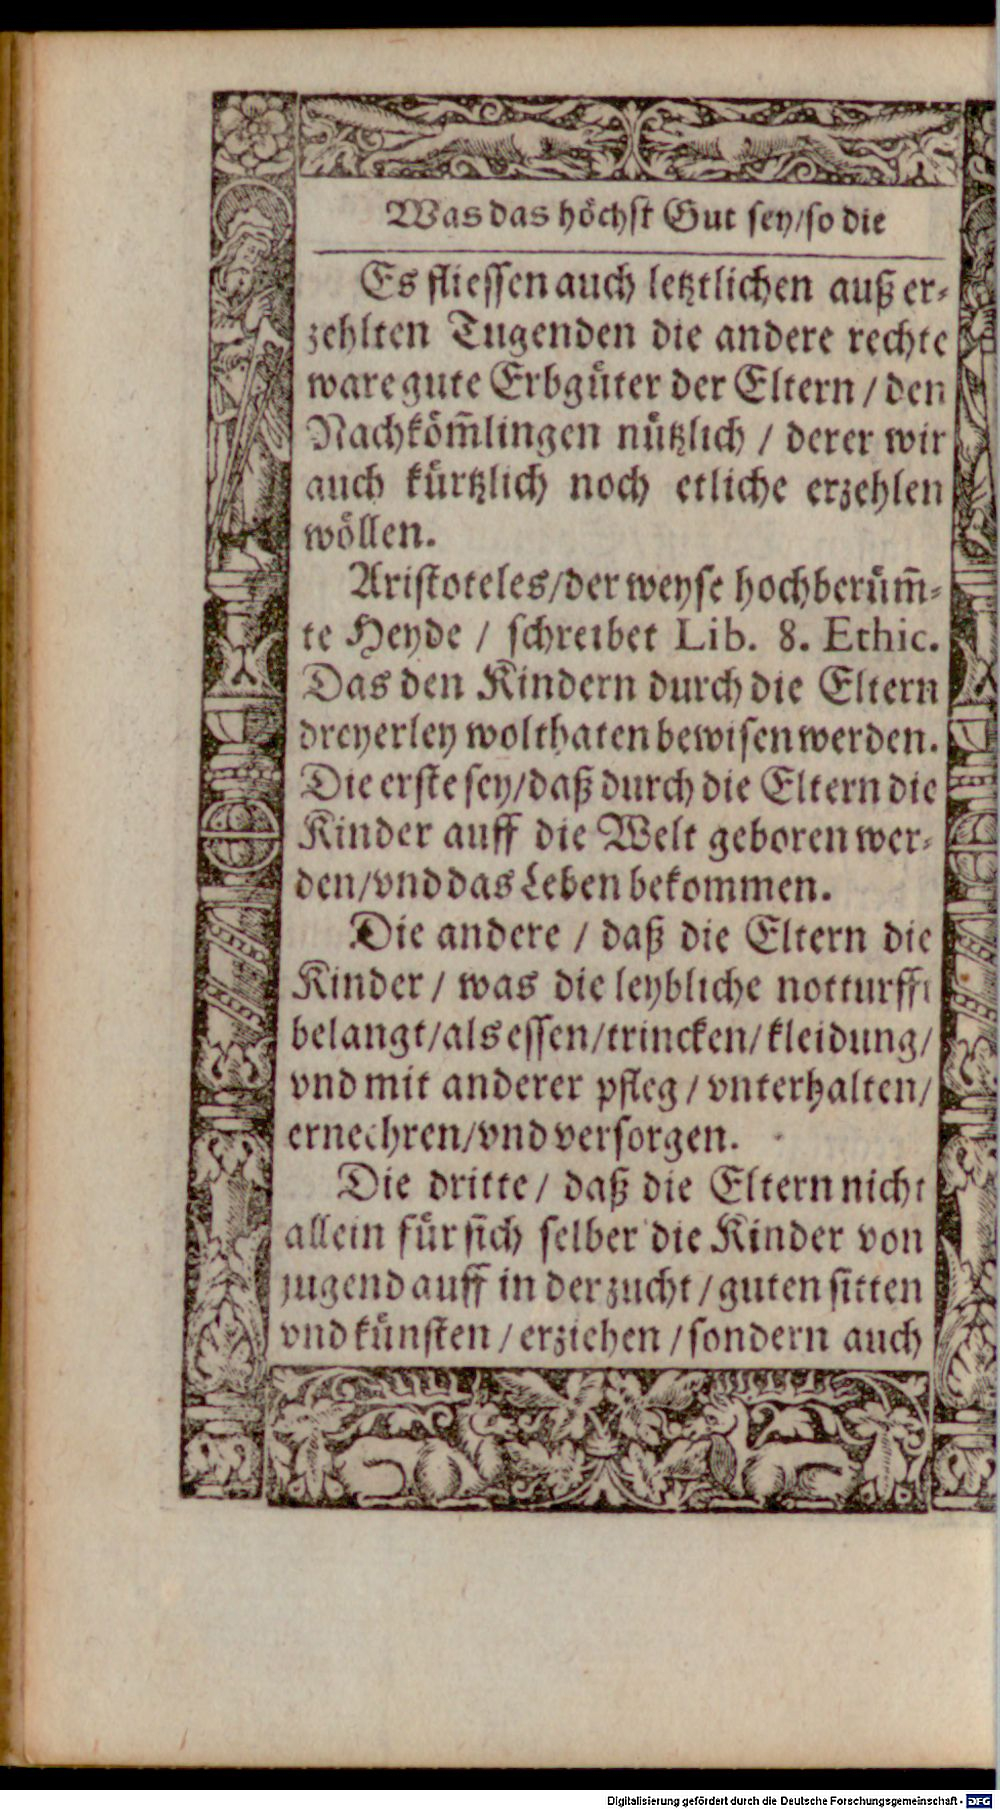 Was das höchst Gut sey/so die
Es fliessen auch letztlichen auß er-
zehlten Tugenden die andere rechte
ware gute Erbgüter der Eltern / den
Nachköm̃lingen nützlich / derer wir
auch kürtzlich noch etliche erzehlen
wöllen.
Aristoteles/der weyse hochberüm̃-
te Heyde / schreibet Lib. 8. Ethic.
Das den Kindern durch die Eltern
dreyerley wolthaten bewisen werden.
Die erste sey/daß durch die Eltern die
Kinder auff die Welt geboren wer-
den/vnd das Leben bekommen.
Die andere / daß die Eltern die
Kinder / was die leybliche notturfft
belangt/als essen/trincken/kleidung/
vnd mit anderer pfleg / vntertzalten/
ernechren/vnd versorgen.
Die dritte / daß die Eltern nicht
allein für sich selber die Kinder von
jugend auff in der zucht / guten sitten
vnd künsten / erziehen / sondern auch
Digitalisierung gefördert durch die Deutsche Forschungsgemeinschaft - DFG